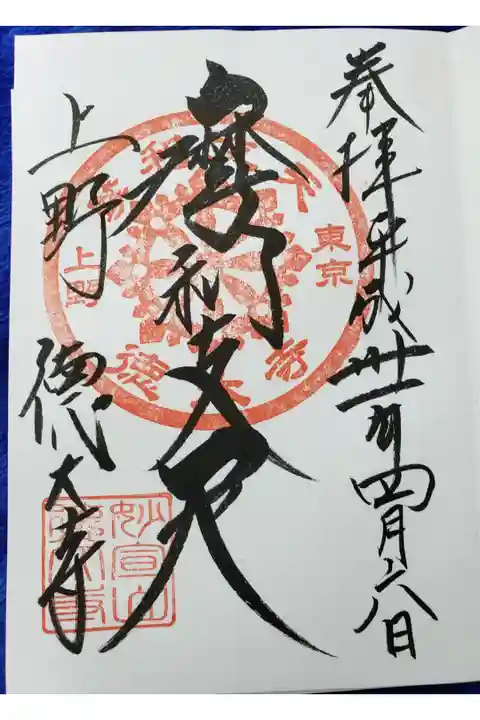 奉拝 平成卅一年四月六日
摩利支天
上野 徳大寺
東京
上野
妙宣山
徳大寺